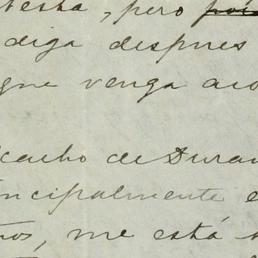 testa, pero
diga despues
que venga a
cacho de Duran
incipalmente e
nos, me está